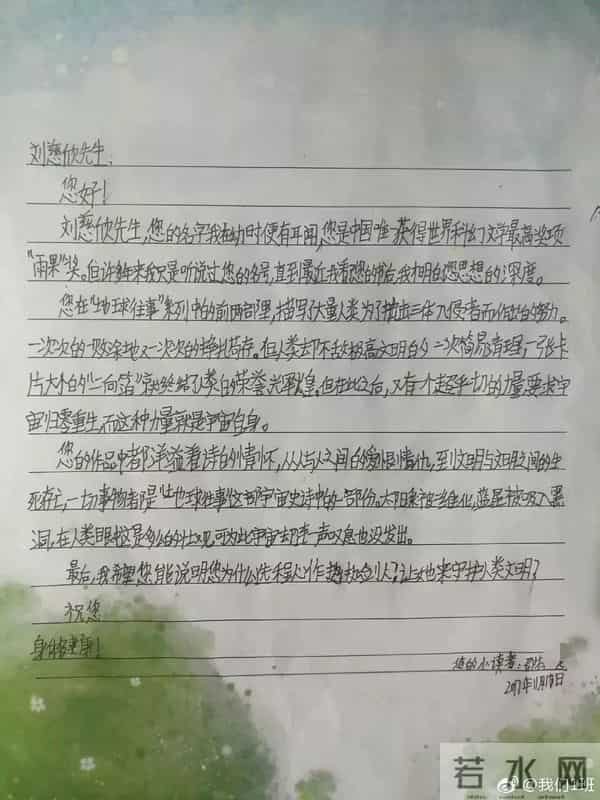 刘慈欣先生:
您好!
刘慈欣先生,您的名字我在幼时便有耳闻,您是中国唯一获得世界科幻文学最高奖项
"雨果"奖。但许多年来我只是听说过您的名号,直到最近我看您的书后,我才明白您思想的深度。
您在"地球往事"系列中的前两部里,描写了大量人类为了抗击三体入侵者而作出的努力。
一次次的一败涂地又一次次的挣扎苟存。但人类却不敌极高文明的一次简易清理,一张卡
片大小的"二向箔"就终结了人类的荣誉光辉煌。但在此之后,又有一个超乎一切的力量要求宇
宙归零重生,而这种力量就是宇宙自身。
您的作品中都洋溢着诗的情怀,从人与人之间的爱恨情仇,到文明与文明之间的生
死存亡,一切事物都是"地球往事"这部宇宙史诗中的一部份。太阳系被二维化,蓝星被吸入黑
洞,在人类眼中这是多么的壮观,可为此宇宙却连一声叹息也没发出。
最后,我希望您能说明您为什么选程心作为执剑人?让她来守护人类文明?
祝您
身体健康!
您的小读者:
2017年11月18日
若水网
@我们1班